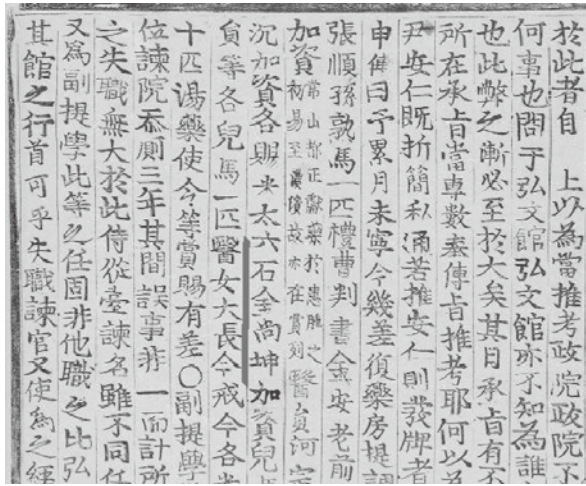 於此者自　上以爲當推考政院政院不
何事也問于弘文館弘文館亦不知爲誰
也此弊之漸必至於大矣其日承旨有不
所在承旨當專數奏傳旨推考耶何以爲
尹安仁旣折簡私通若推安仁則發牌者
申傳曰予累月未寧今幾差復藥房提調
張順孫熟馬一匹禮曹判書金安老前
加資常山都正獻藥於患腫之初易至濃潰故亦在賞列醫員河宗
沉加資各賜米太六石金尚坤加資兒馬
員等各兒馬一匹醫女大長今戒今各米
十匹湯藥使令等賞賜有差○副提學
位諫院忝廁三年其間誤事非一而計所
之失職無大於此侍從臺諫名雖不同任
又爲副提學此等之任固非他職之比弘
其館之行首可乎失職諫官又使爲之經